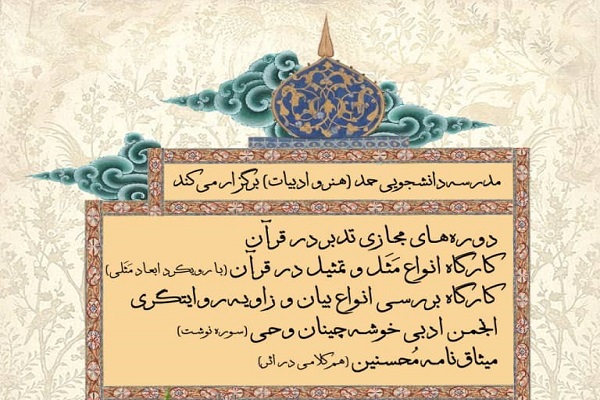 مدرسه دانشجویی حمد (هنر و ادبیات) برگزار می کند
دوره های مجازی تدبر در قرآن
کارگاه انواع مَثَل و تمثیل در قرآن (با رویکرد ابعاد مَثَلی)
کارگاه بررسی انواع بیان و زاویه روایتگری
انجمن ادبی خوشه چینان وحی (سوره نوشت)
میثاق نامه مُحسنین (هم کلامی در اثر)